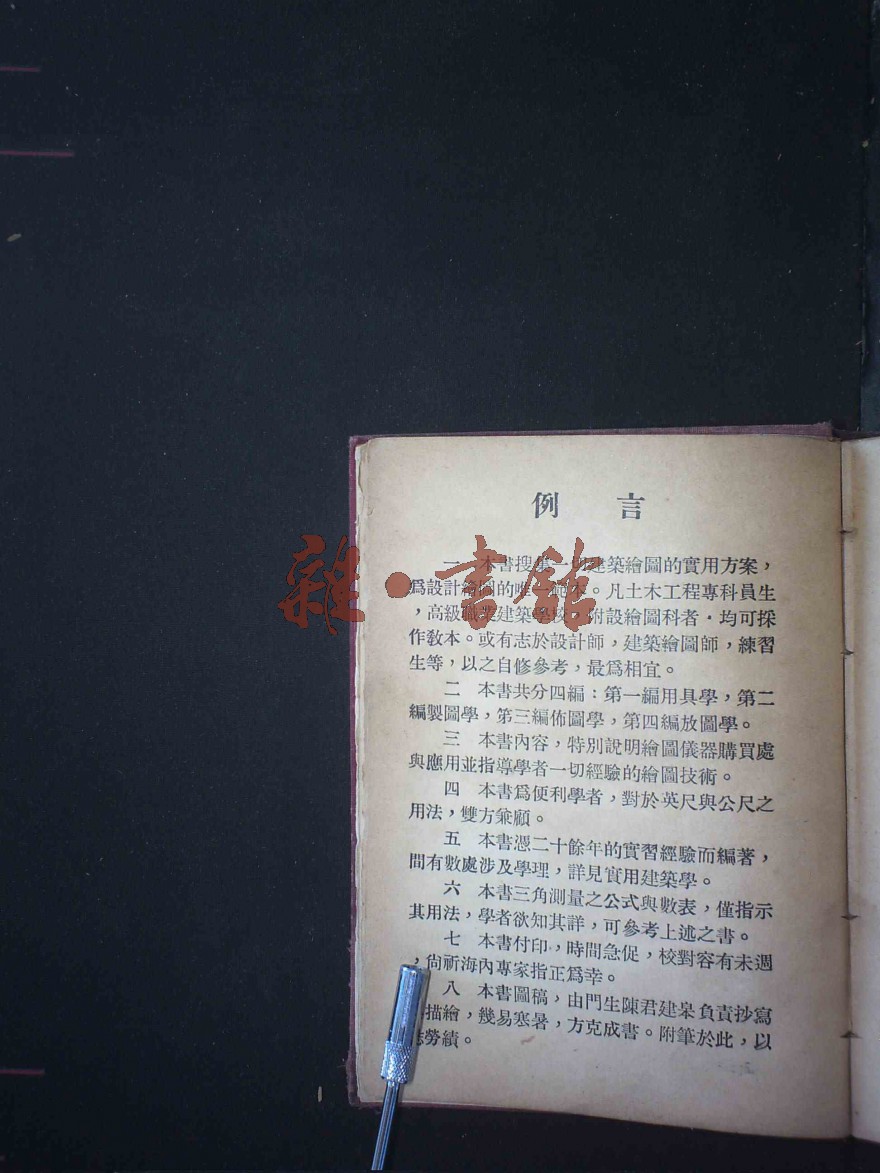 例言
一　本書搜集一切建築繪圖的實用方案，
爲設計繪圖的唯一範本。凡土木工程專科員生
，高級職業建築學校，附設繪圖科者・均可採
作敎本。或有志於設計師，建築繪圖師，練習
生等，以之自修參考，最爲相宜。
二　本書共分四編：第一編用具學，第二
編製圖學，第三編佈圖學，第四編放圖學。
三　本書內容，特別說明繪圖儀器購買處
與應用並指導學者一切經驗的繪圖技術。
四　本書爲便利學者，對於英尺與公尺之
用法，雙方兼顧。
五　本書憑二十餘年的實習經驗而編著，
間有數處涉及學理，詳見實用建築學。
六　本書三角測量之公式與數表，僅指示
其用法，學者欲知其詳，可參考上述之書。
七　本書付印，時間急促，校對容有未週
，尙祈海內專家指正爲幸。
八　本書圖稿，由門生陳君建皋負責抄寫
描繪，幾易寒暑，方克成書。附筆於此，以
誌勞績。
雜・書館